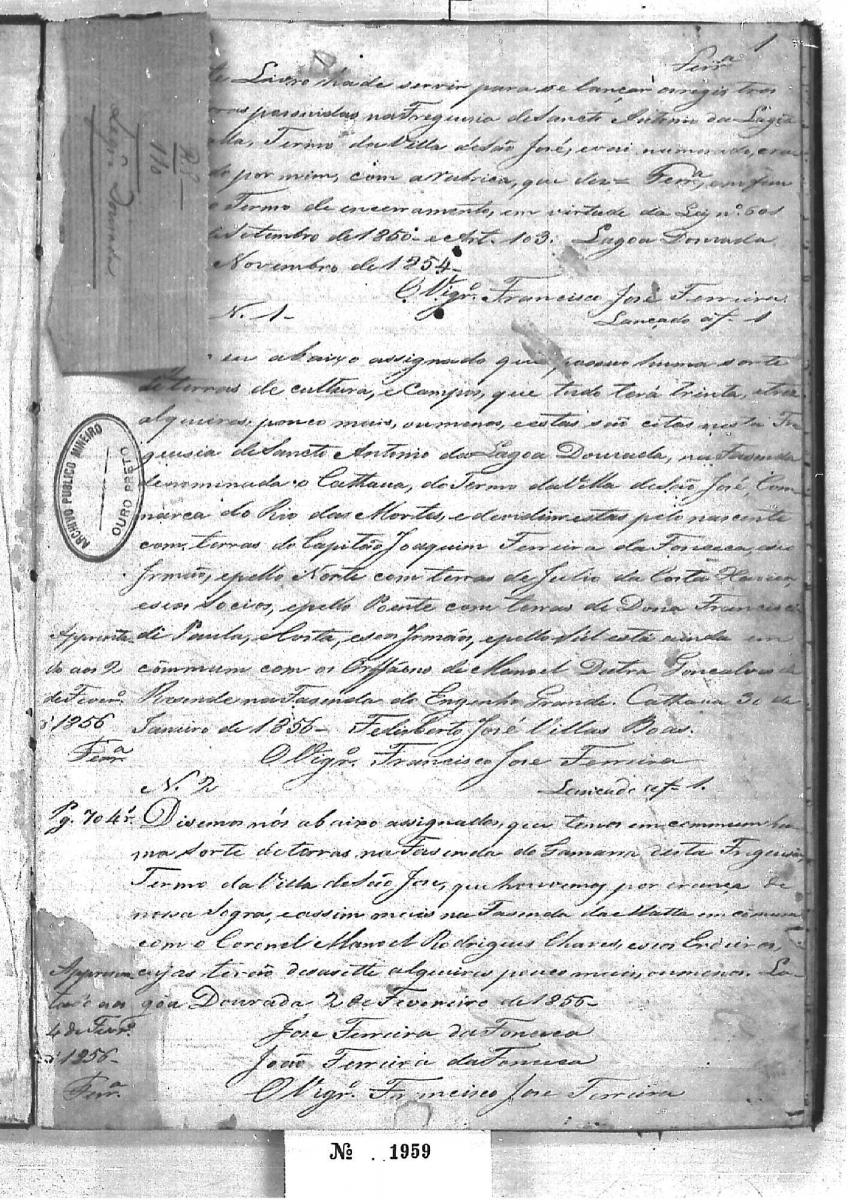 1
Ferrª
te Livro hade servir para se lançar oregistros
possuidas, na Freguesia de Sancto Antonio da Lagôa
Termo da Villa de São José, e vai numerado,
do por mim, com a rubrica, que diz = Ferrª, em fim
o Termo de encerramento, em virtude da Ley nº 601
de Setembro de 1850 e Art. 103. Lagoa Dourada
Novembro de 1854
O Vigrº Francisco José Ferreira
N. 1
Lançado af. 1
eu abaixo assignado que possuo huma sorte
de terras de cultura, e Campos, que tudo terá trinta, e tres
alqueires pouco mais, ou menos, e estas são citas nesta Fre
guesia de Sancto Antonio da Lagoa Dourada, na Fasenda
denominada o Cattaua, do Termo da Villa de São José, Com
marca do Rio das Mortes, e devidem estas pelo nascente
com terras do Capitão Joaquim Ferreira da Fonseca, e seo
Irmão, epello Norte com terras de Julio da Costa
e seos Socios, epello Poente com terras de Dona Francisca
de Paula, e Costa, e seos Irmãos, epello Sul está ainda em
cõmmum com os Orffãens de Manoel Dutra Gonçalves de
Resende na Fasenda do Engenho Grande. Cattaua 30 de
Janeiro de 1856 Felisberto José Villas Boas.
Appresenta
do aos 2
de Feverº
1856
Ferrª
O Vigrº Francisco José Ferreira
N. 2
Lancado af. 1.
Pg. 704 r.
Disemos nós abaixo assignados, que temos em commum hu
ma sorte de terras, na Fasenda do Gamarra desta Freguesia
Termo da Villa de São José, que houvemos por erança de
nossa Sogra, e assim mais na Fasenda da Matta em cõmum
com o Coronel Manoel Rodrigues Chaves, e seos Erdeiros,
cujas terão desasette alqueires pouco mais, ou menos. La-
gôa Dourada 2 de Fevereiro de 1856
Appresen
tado aos
4 de Fevrº
1856
Ferrª
José Ferreira da Fonseca
João Ferreira da Fonseca
O Vigrº Francisco José Ferreira
110
Lagª Dourada
ARCHIVO PUBLICO MINEIRO
OURO PRETO
№ 1959